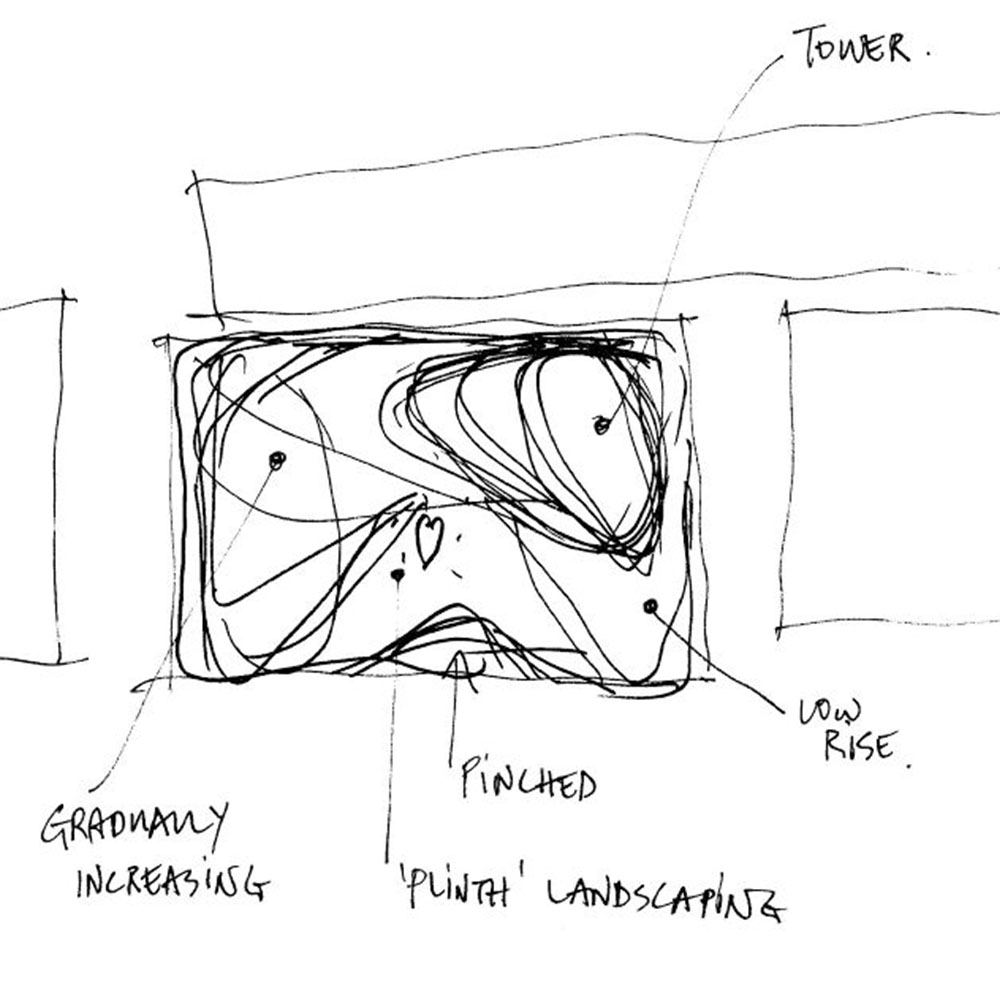 TOWER.
LOW
RISE.
PINCHED
GRADUALLY
INCREASING
'PLINTH' LANDSCAPING